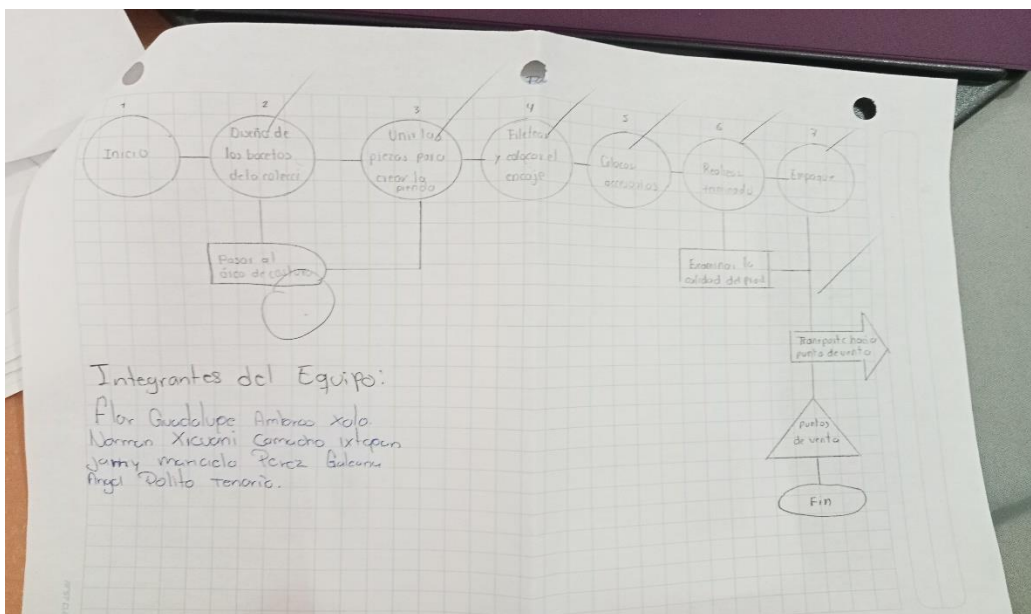 1
Inicio
2
Diseño de
los bocetos
de la colecc
3
Unir las
piezas para
crear la
prenda
4
Filetear
y colocar el
encaje
5
Colocar
accesorios
6
Realizar
terminado
7
Empaque
Pasar al
área de costura
Examinar la
calidad del prod
Transporte hacia
punto de venta
puntos
de venta
Fin
Integrantes del Equipo:
Flor Guadalupe Ambros Xolo
Norman Xicuani Camacho Ixtepan
Perez
Angel Polito Tenorio.